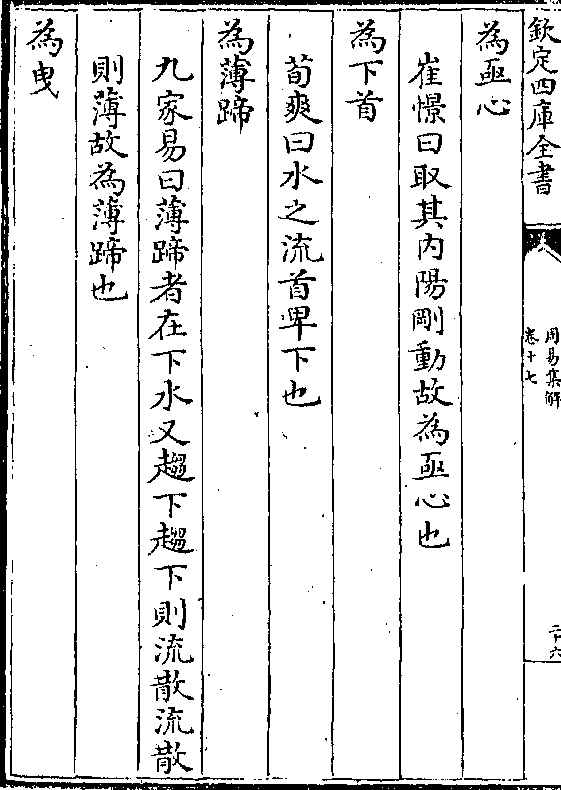 欽定四庫全書
周易集解
卷十七
二十六
為亟心
崔憬曰取其内陽剛動故為亟心也
為下首
荀爽曰水之流首卑下也
為薄蹄
九家易曰薄蹄者在下水又趨下趨下則流散流散
則薄故為薄蹄也
為曳